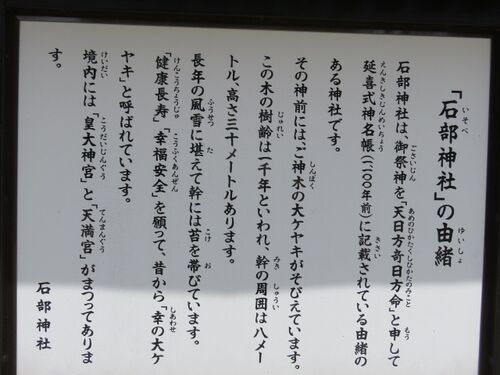 「石部神社」の由緒
石部神社は、御祭神を「天日方奇日方命」と申して
延喜式神名帳(一、一〇〇年前)に記載されている由緒の
ある神社です。
その神前には、ご神木の大ケヤキがそびえています。
この木の樹齢は一千年といわれ、幹の周囲は八メー
トル、高さ三十メートルあります。
長年の風雪に堪えて幹には苔を帯びています。
「健康長寿」「幸福安全」を願って、昔から「幸の大ケ
ヤキ」と呼ばれています。
境内には「皇大神宮」と「天満宮」がまつってありま
す。
石部神社